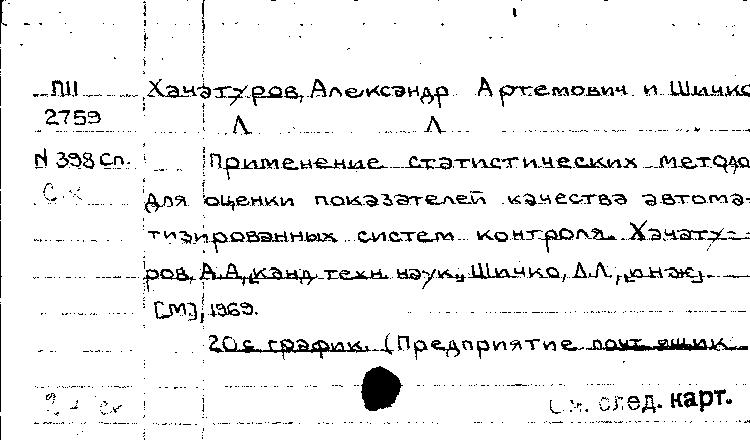 П11 Хачатуров, Александр Артемович и Шичко
2759 Л Л
N 398 Сп. Применение статистических методо
для оценки показателей качества автома-
тизированных систем контроля. Хачату-
ров, А.А., [канд. техн. наук], Шичко, Л.Л., [инж].
[М], 1969.
20 с график. (Предприятие почт ящик
след. карт.